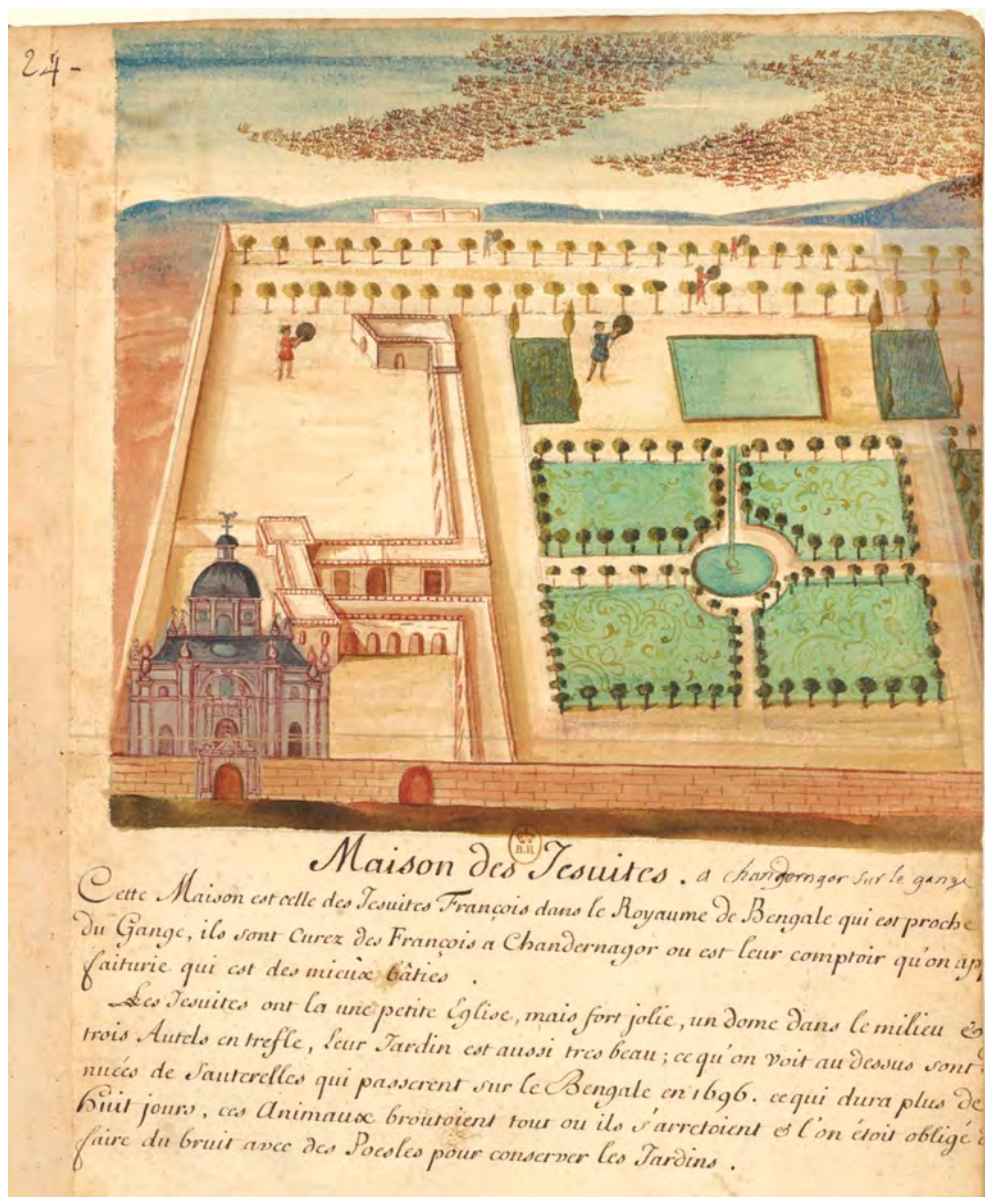 24-
B.R
Maison des Jesuites. a chandernagor sur le gange
Cette Maison est celle des Jesuites François dans le Royaume de Bengale qui est proche
du Gange, ils sont Curez des François a Chandernagor ou est leur comptoir qu'on ap
faiturie qui est des mieux bâties.
Les Jesuites ont la une petite Eglise, mais fort jolie, un dome dans le milieu &
trois Autels en trefle, leur Jardin est aussi tres beau; ce qu'on voit au dessus sont
nuées de Sauterelles qui passerent sur le Bengale en 1696. ce qui dura plus de
huit jours, ces Animaux broutoient tout ou ils s'arretoient & l'on étoit obligé
faire du bruit avec des Poesles pour conserver les Jardins.